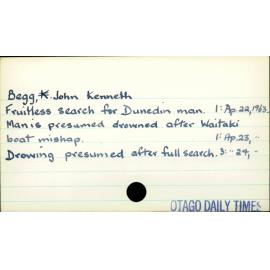 Begg, K. John Kenneth
Fruitless search for Dunedin man. 1: Ap.22,1963.
Man is presumed drowned after Waitaki
boat mishap. 1: Ap.23, "
Drowing presumed after full search. 3: " 24, "
OTAGO DAILY TIMES